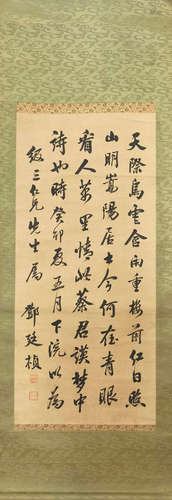 天際烏雲含雨重樓前紅日照
山明嵩陽居士今何在青眼
看人萬里情此蔡君謨夢中
詩也時癸卯夏五月下浣以為
三仁兄先生屬 鄧廷楨